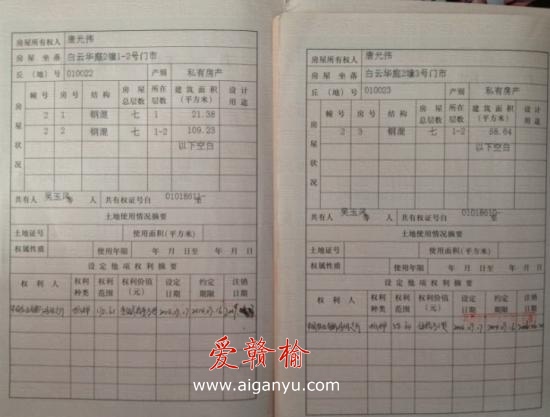 房屋所有权人 唐允伟
房屋坐落 白云华庭2幢1-2号门市
丘（地）号 010022 产别 私有房产
房屋状况
幢号 房号 结构 房屋总层数 所在层数 建筑面积（平方米） 设计用途
2 1 钢混 七 1 21.38
2 2 钢混 七 1-2 109.23
以下空白
共有人 吴玉凤 等 人 共有权证号自 01018611- 至
土地使用情况摘要
土地证号 使用面积(平方米)
权属性质 使用年限 年 月 日至 年 月 日
设定他项权利摘要
权利人 权利种类 权利范围 权利价值（元） 设定日期 约定期限 注销日期
房屋所有权人 唐允伟
房屋坐落 白云华庭2幢3号门市
丘（地）号 010023 产别 私有房产
房屋状况
幢号 房号 结构 房屋总层数 所在层数 建筑面积（平方米） 设计用途
2 3 钢混 七 1-2 58.64
以下空白
共有人 吴玉凤 等 人 共有权证号自 01018610- 至
土地使用情况摘要
土地证号 使用面积（平方米）
权属性质 使用年限 年 月 日至 年 月 日
设定他项权利摘要
权利人 权利种类 权利范围 权利价值（元） 设定日期 约定期限 注销日期
爱赣榆
www.aiganyu.com